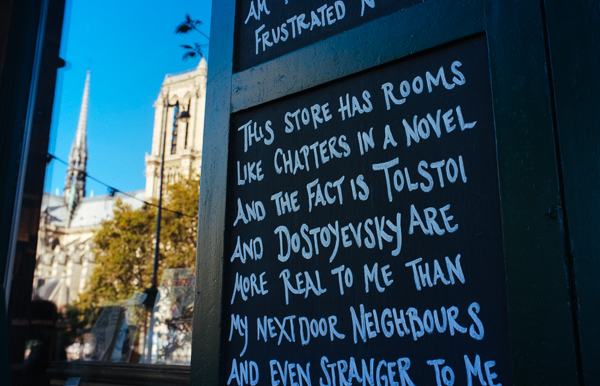 AM
FRUSTRATED N
THIS STORE HAS ROOMS
LIKE CHAPTERS IN A NOVEL
AND THE FACT IS TOLSTOI
AND DOSTOYEVSKY ARE
MORE REAL TO ME THAN
MY NEXT DOOR NEIGHBOURS
AND EVEN STRANGER TO ME